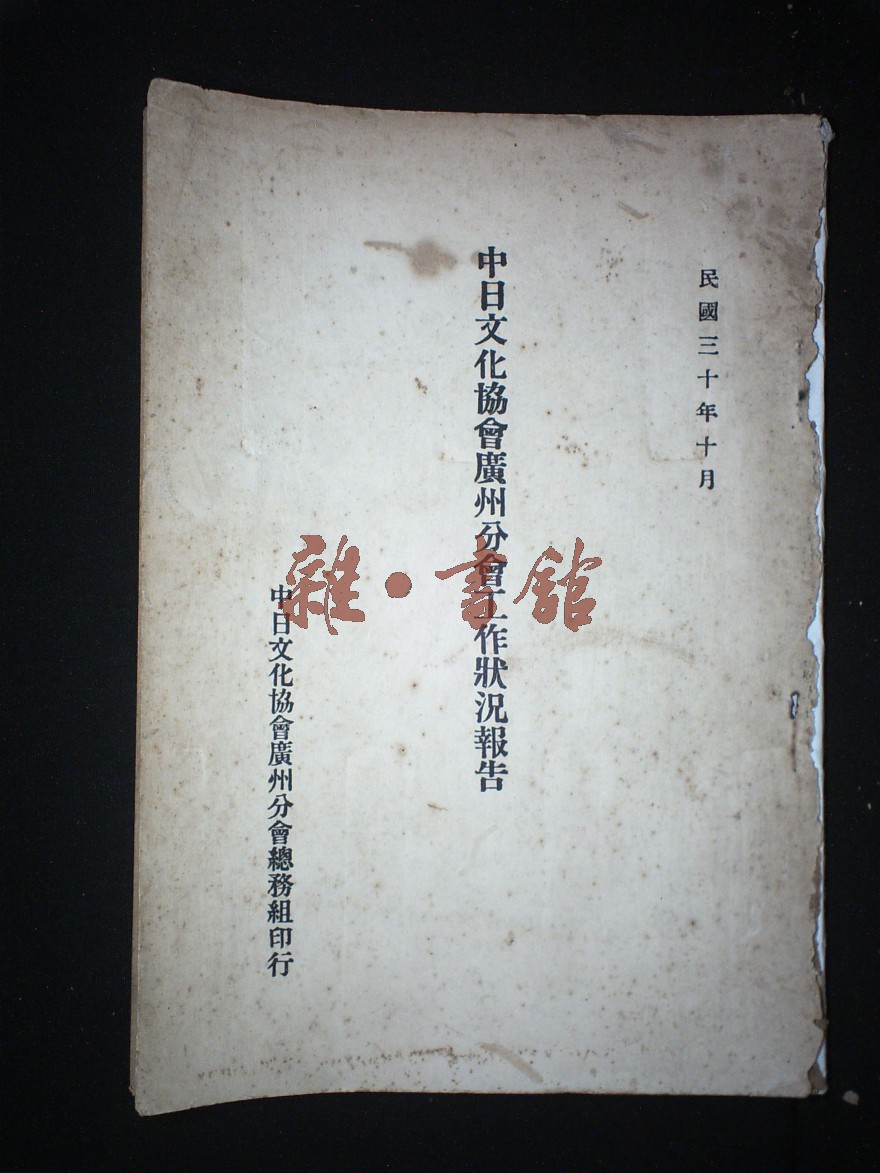 民國三十年十月
中日文化協會廣州分會工作狀況報告
中日文化協會廣州分會總務組印行
雜·書館